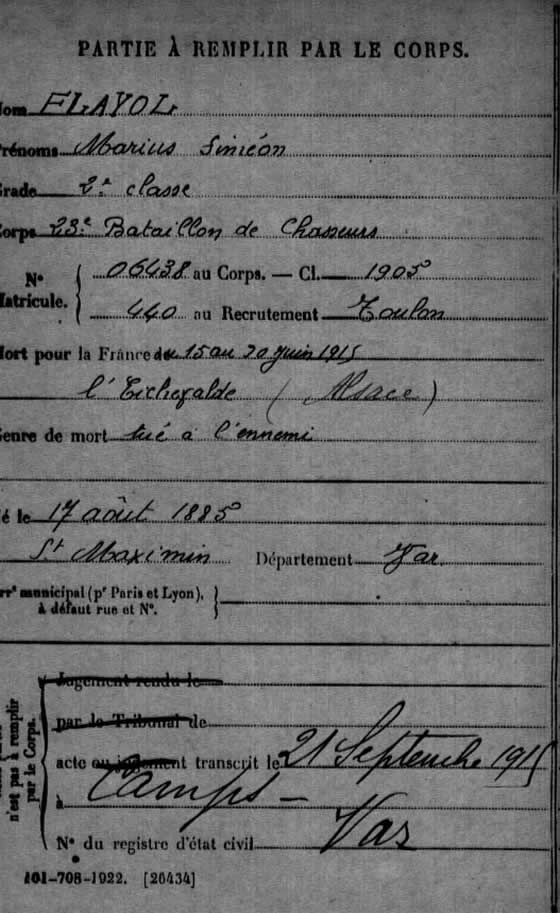 PARTIE À REMPLIR PAR LE CORPS.
Nom FLAYOL
Prénoms Marius Siméon
Grade 2e classe
Corps 23e Bataillon de Chasseurs
No Matricule. { 06438 au Corps. — Cl. 1905
440 au Recrutement Toulon
Mort pour la France du 15 au 20 juin 1915
l'Eichevalde (Alsace)
Genre de mort tué à l'ennemi
Né le 17 août 1885
St Maximin Département Var
Arrt municipal (pr Paris et Lyon), à défaut rue et No. }
Jugement rendu le
par le Tribunal de
acte ou jugement transcrit le 21 Septembre 1915
à Camps — Var
No du registre d'état civil
n'est pas à remplir par le Corps.
101-708-1922. [26434]